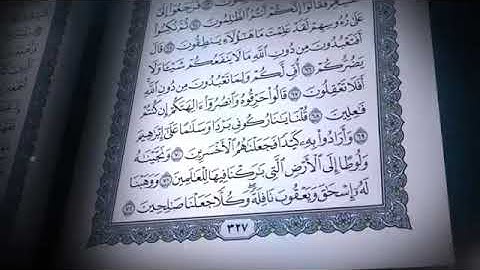 فَقَالُوٓا۟ إِنَّكُمْ أَنتُمُ ٱلظَّٰلِمُونَ ٦٤ ثُمَّ نُكِسُوا۟
عَلَىٰ رُءُوسِهِمْ لَقَدْ عَلِمْتَ مَا هَٰٓؤُلَآءِ يَنطِقُونَ ٦٥ قَالَ
أَفَتَعْبُدُونَ مِن دُونِ ٱللَّهِ مَا لَا يَنفَعُكُمْ شَيْـًٔا وَلَا
يَضُرُّكُمْ ٦٦ أُفٍّ لَّكُمْ وَلِمَا تَعْبُدُونَ مِن دُونِ ٱللَّهِ
أَفَلَا تَعْقِلُونَ ٦٧ قَالُوا۟ حَرِّقُوهُ وَٱنصُرُوٓا۟ ءَالِهَتَكُمْ إِن كُنتُمْ
فَٰعِلِينَ ٦٨ قُلْنَا يَٰنَارُ كُونِى بَرْدًا وَسَلَٰمًا عَلَىٰٓ إِبْرَٰهِيمَ
٦٩ وَأَرَادُوا۟ بِهِۦ كَيْدًا فَجَعَلْنَٰهُمُ ٱلْأَخْسَرِينَ ٧٠ وَنَجَّيْنَٰهُ
وَلُوطًا إِلَى ٱلْأَرْضِ ٱلَّتِى بَٰرَكْنَا فِيهَا لِلْعَٰلَمِينَ ٧١ وَوَهَبْنَا
لَهُۥٓ إِسْحَٰقَ وَيَعْقُوبَ نَافِلَةً ۖ وَكُلًّا جَعَلْنَا صَٰلِحِينَ ٧٢
٣٢٧